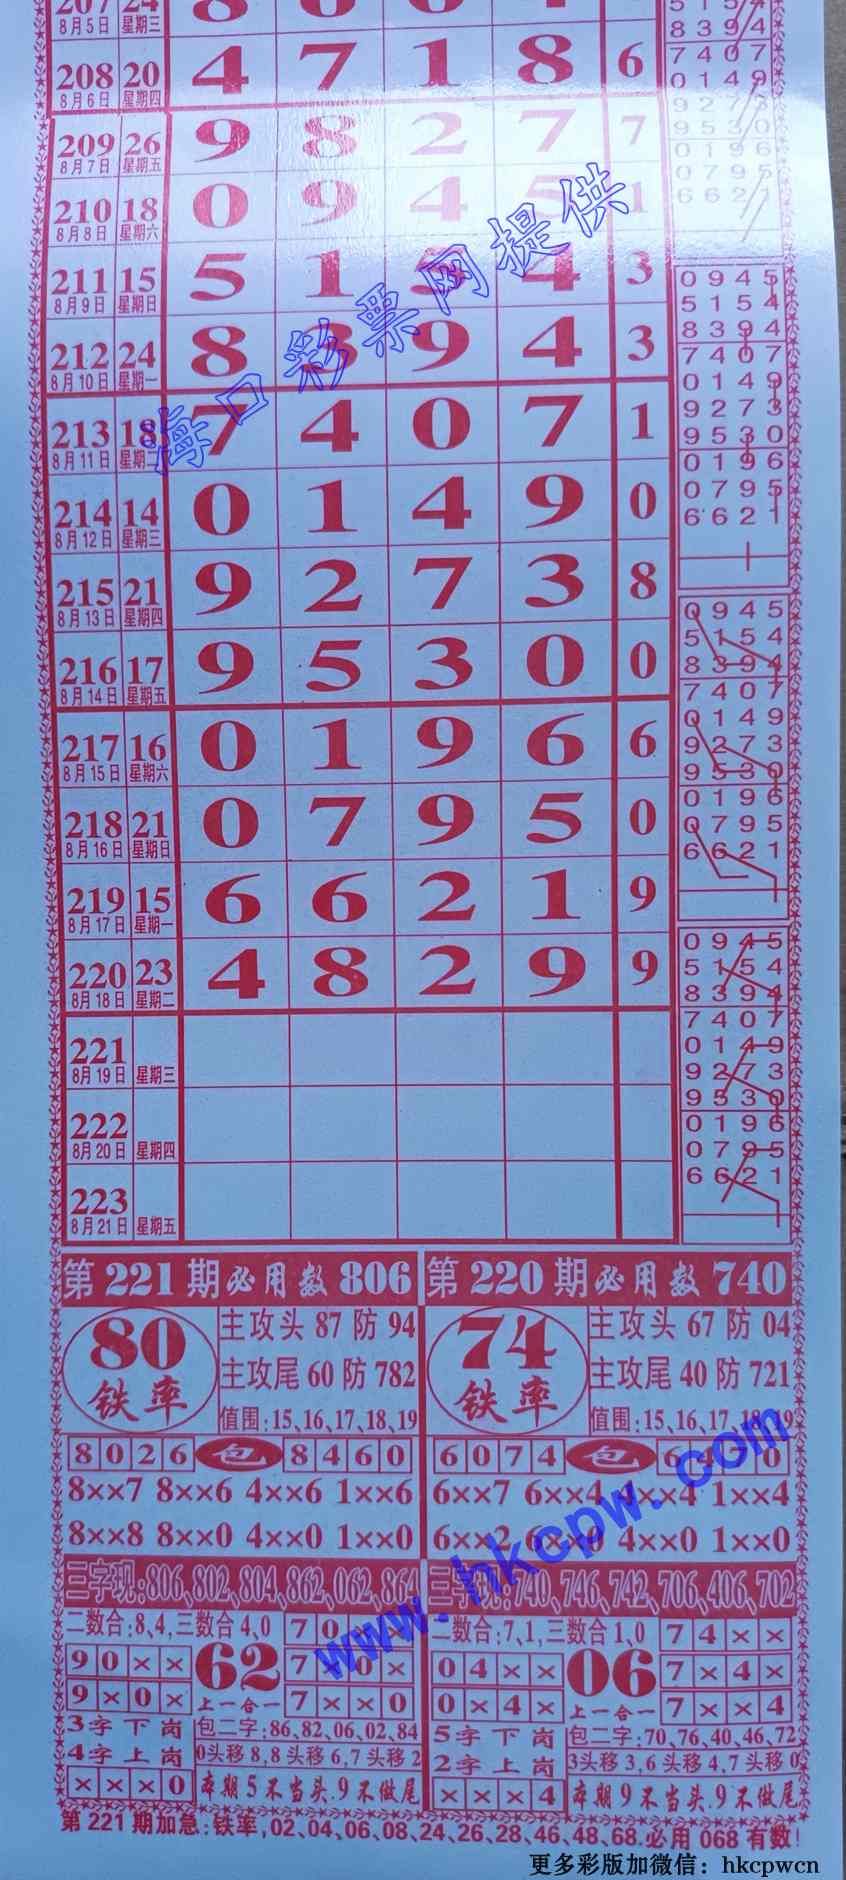 207 24
8月5日 星期三
208 20 4 7 1 8 6
8月6日 星期四
209 26 9 8 2 7 7
8月7日 星期五
210 18 0 9 4 5 1
8月8日 星期六
211 15 5 1 5 4 3
8月9日 星期日
212 24 8 3 9 4 3
8月10日 星期一
213 18 7 4 0 7 1
8月11日 星期二
214 14 0 1 4 9 0
8月12日 星期三
215 21 9 2 7 3 8
8月13日 星期四
216 17 9 5 3 0 0
8月14日 星期五
217 16 0 1 9 6 6
8月15日 星期六
218 21 0 7 9 5 0
8月16日 星期日
219 15 6 6 2 1 9
8月17日 星期一
220 23 4 8 2 9 9
8月18日 星期二
221
8月19日 星期三
222
8月20日 星期四
223
8月21日 星期五
5154
8394
7407
0149
9273
9530
0196
0795
6621
0945
5154
8394
7407
0149
9273
9530
0196
0795
6621
0945
5154
8394
7407
0149
9273
9530
0196
0795
6621
0945
5154
8394
7407
0149
9273
9530
0196
0795
6621
海口彩票网提供
第221期必用数806
80
铁率
主攻头87防94
主攻尾60防782
值围:15、16、17、18、19
8026 包 8460
8××7 8××6 4××6 1××6
8××8 8××0 4××0 1××0
三字现:806、802、804、862、062、864
二数合:8、4,三数合4、0
90××
9×0×
62
上一合一
7××0
3字下岗
4字上岗
×××0
包二字:86、82、06、02、84
0头移8,8头移6,7头移2
本期5不当头.9不做尾
第220期必用数740
74
铁率
主攻头67防04
主攻尾40防721
值围:15、16、17、18、19
6074 包 6470
6××7 6××4 4××4 1××4
6××2 6××0 4××0 1××0
三字现:740、746、742、706、406、702
二数合:7、1,三数合1、0
74××
04××
7×4×
0×4×
06
上一合一
7××4
5字下岗
2字上岗
×××4
包二字:70、76、40、46、72
3头移3,6头移4,7头移0
本期9不当头.9不做尾
第221期加急:铁率,02、04、06、08、24、26、28、46、48、68.必用068有数!
www.hkcpw.com
更多彩版加微信：hkcpwcn